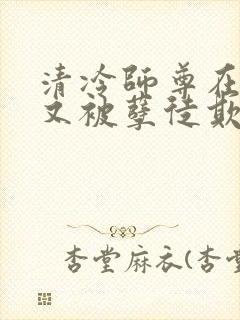 清冷师尊在
又被孽徒欺
杏堂麻衣(杏堂